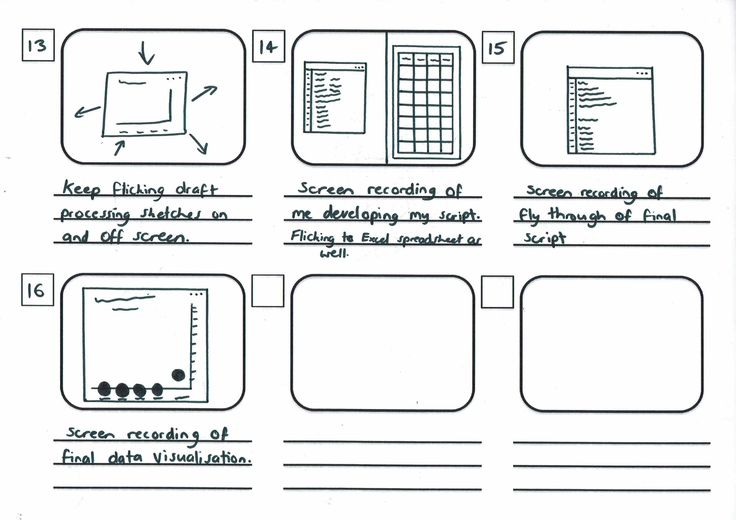 13
Keep flicking draft
processing sketches on
and off screen.
14
Screen recording of
me developing my script.
Flicking to Excel spreadsheet as
well.
15
Screen recording of
fly through of final
script
16
Screen recording of
final data visualisation.